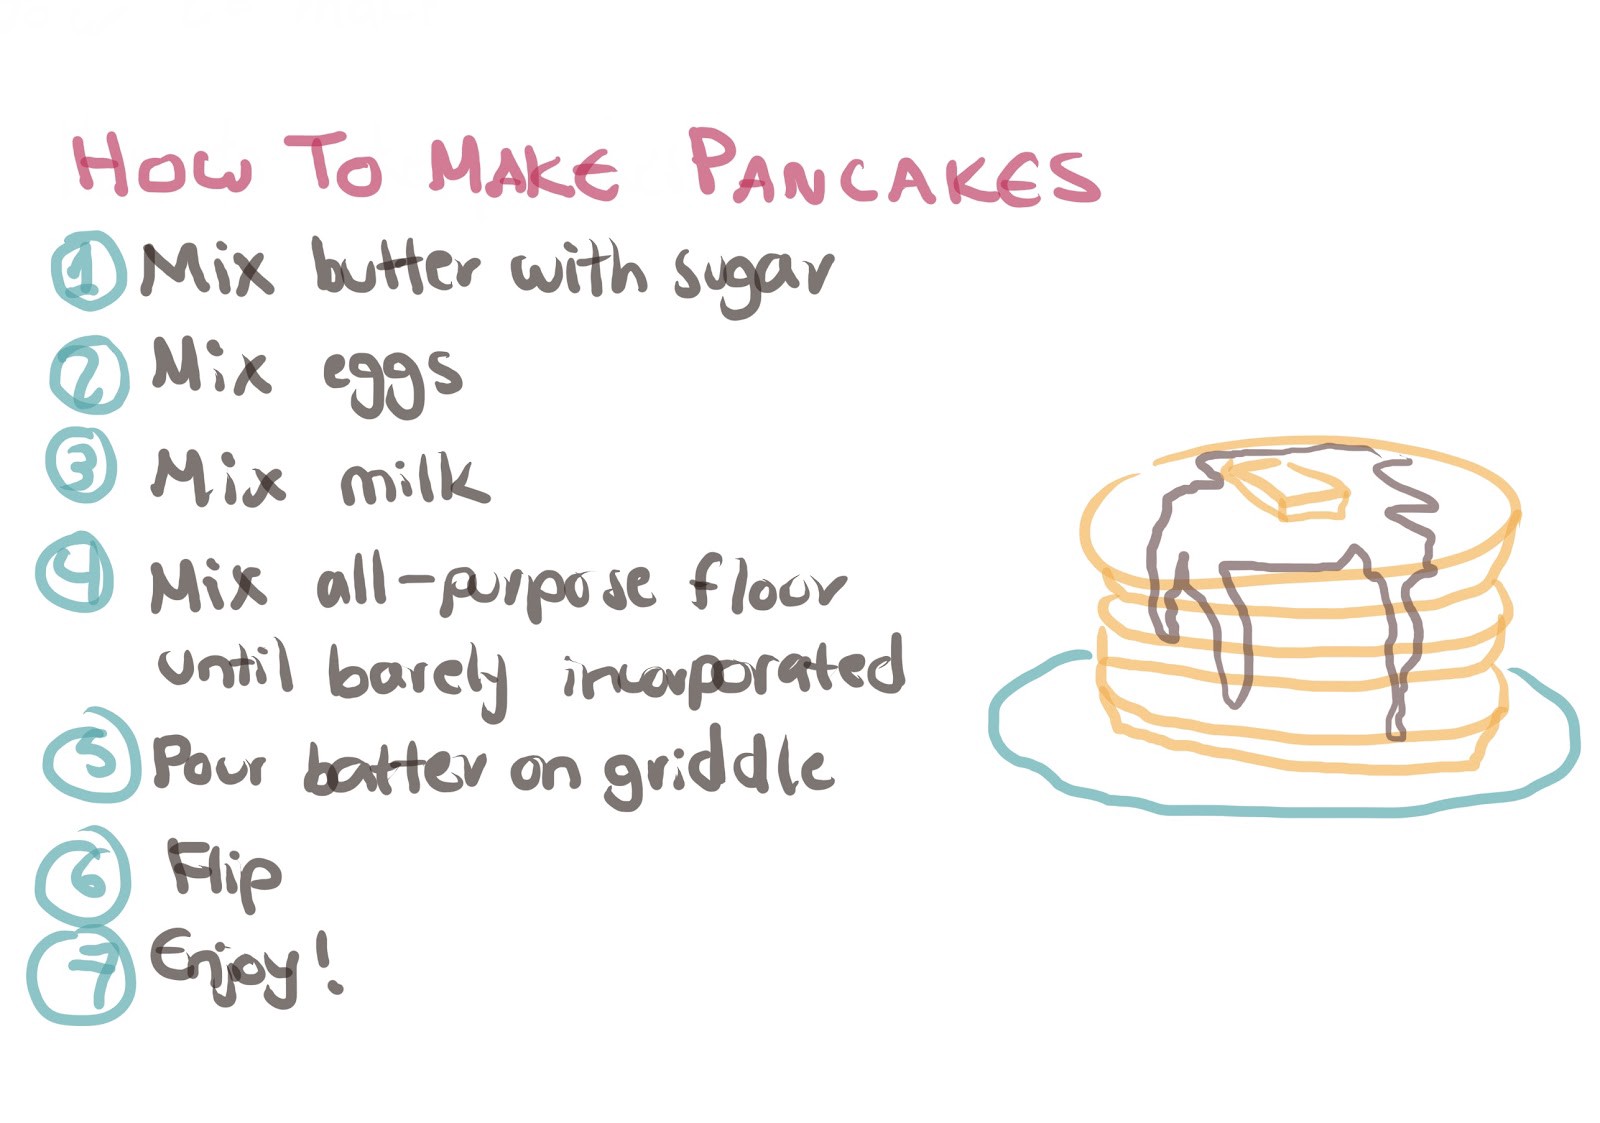 HOW TO MAKE PANCAKES
1 Mix butter with sugar
2 Mix eggs
3 Mix milk
4 Mix all-purpose flour
until barely incorporated
5 Pour batter on griddle
6 Flip
7 Enjoy!